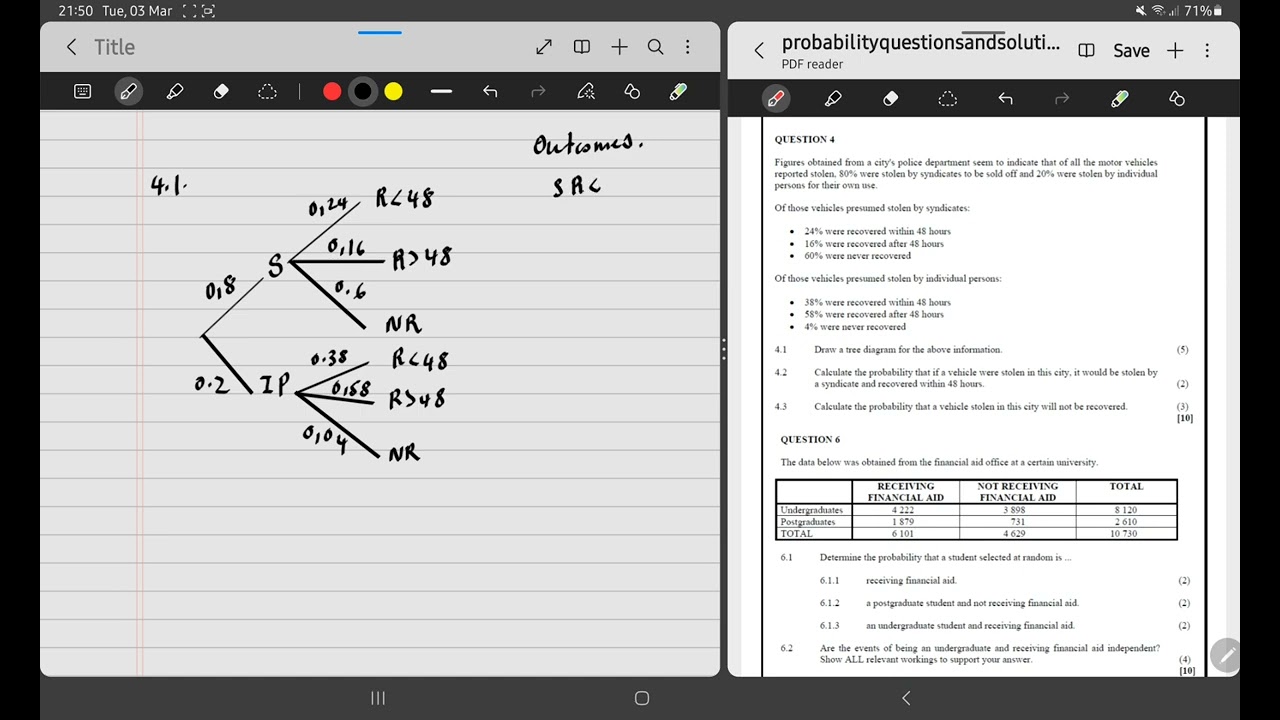 21:50 Tue, 03 Mar
71%
Title
Outcomes.
4.1.
S R<
0,24 R<48
0,16 R>48
S
0,8
0.6
NR
0.38 R<48
0.2 IP 0,58 R>48
0,04
NR
probabilityquestionsandsoluti...
PDF reader
Save
QUESTION 4
Figures obtained from a city's police department seem to indicate that of all the motor vehicles
reported stolen, 80% were stolen by syndicates to be sold off and 20% were stolen by individual
persons for their own use.
Of those vehicles presumed stolen by syndicates:
• 24% were recovered within 48 hours
• 16% were recovered after 48 hours
• 60% were never recovered
Of those vehicles presumed stolen by individual persons:
• 38% were recovered within 48 hours
• 58% were recovered after 48 hours
• 4% were never recovered
4.1 Draw a tree diagram for the above information. (5)
4.2 Calculate the probability that if a vehicle were stolen in this city, it would be stolen by
a syndicate and recovered within 48 hours. (2)
4.3 Calculate the probability that a vehicle stolen in this city will not be recovered. (3)
[10]
QUESTION 6
The data below was obtained from the financial aid office at a certain university.
RECEIVING FINANCIAL AID NOT RECEIVING FINANCIAL AID TOTAL
Undergraduates 4 222 3 898 8 120
Postgraduates 1 879 731 2 610
TOTAL 6 101 4 629 10 730
6.1 Determine the probability that a student selected at random is ...
6.1.1 receiving financial aid. (2)
6.1.2 a postgraduate student and not receiving financial aid. (2)
6.1.3 an undergraduate student and receiving financial aid. (2)
6.2 Are the events of being an undergraduate and receiving financial aid independent?
Show ALL relevant workings to support your answer. (4)
[10]